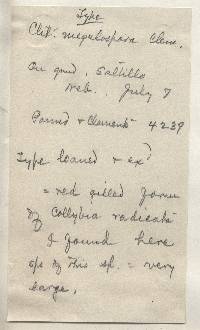 Type
Clit. megalospora Clem.
On grnd, Saltillo
Neb. July 7
Pound & Clements 4239
Type loaned & ex'd
= red gilled form
of Collybia radicata
I found here
sps of this sp. = very
large.